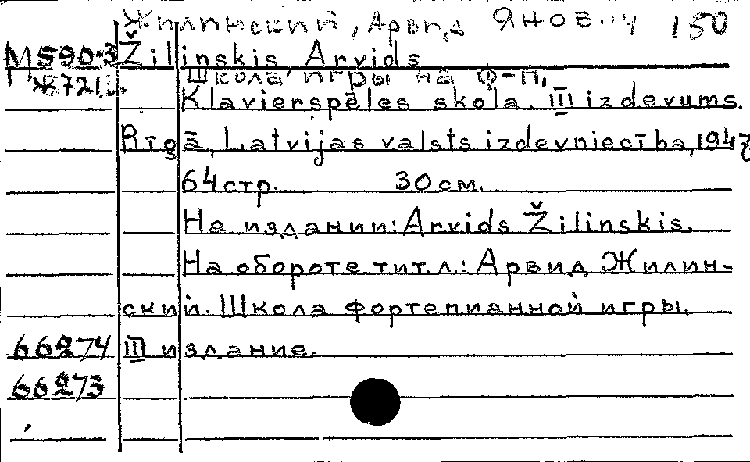 Жилинский, Арвид Янович 150
М590-3 Žilinskis Arvids
Ж721 Школа игры на ф-п.
Klavierspēles skola. III izdevums.
Rīgā, Latvijas valsts izdevniecība, 1947
64 стр. 30 см.
На издании: Arvids Žilinskis.
На обороте тит. л.: Арвид Жилин-
ский. Школа фортепианной игры.
66274 III издание.
66273